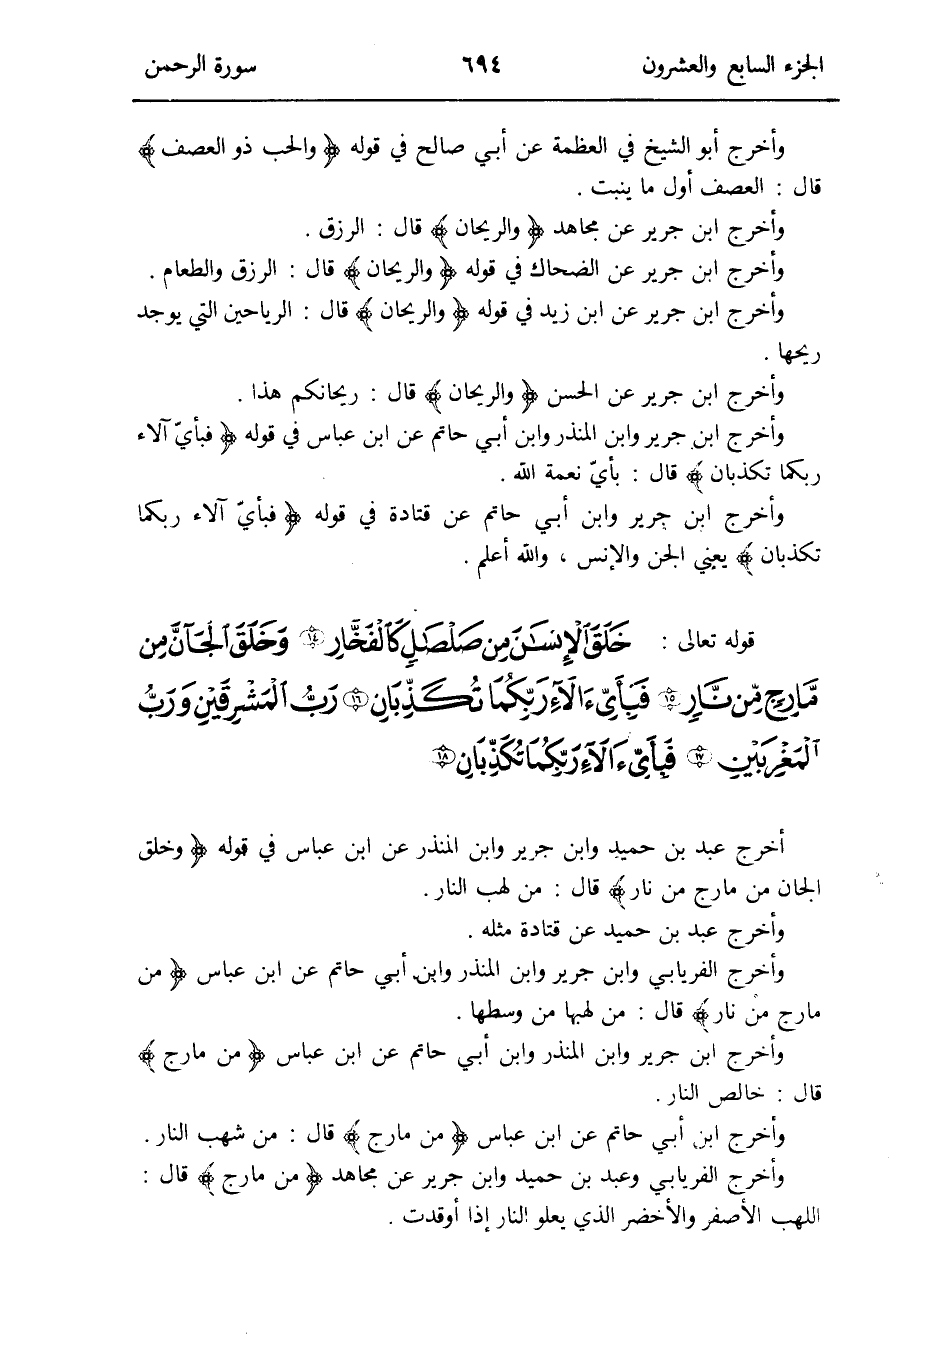 الجزء السابع والعشرون ٦٩٤ سورة الرحمن
وأخرج أبو الشيخ في العظمة عن أبي صالح في قوله ﴿ والحب ذو العصف ﴾
قال : العصف أول ما ينبت .
وأخرج ابن جرير عن مجاهد ﴿ والريحان ﴾ قال : الرزق .
وأخرج ابن جرير عن الضحاك في قوله ﴿ والريحان ﴾ قال : الرزق والطعام .
وأخرج ابن جرير عن ابن زيد في قوله ﴿ والريحان ﴾ قال : الرياحين التي يوجد
ريحها .
وأخرج ابن جرير عن الحسن ﴿ والريحان ﴾ قال : ريحانكم هذا .
وأخرج ابن جرير وابن المنذر وابن أبي حاتم عن ابن عباس في قوله ﴿ فبأيّ آلاء
ربكما تكذبان ﴾ قال : بأيّ نعمة الله .
وأخرج ابن جرير وابن أبي حاتم عن قتادة في قوله ﴿ فبأيّ آلاء ربكما
تكذبان ﴾ يعني الجن والإنس ، والله أعلم .
قوله تعالى : خَلَقَ ٱلْإِنسَٰنَ مِن صَلْصَٰلٍ كَٱلْفَخَّارِ ١٤ وَخَلَقَ ٱلْجَآنَّ مِن
مَّارِجٍ مِّن نَّارٍ ١٥ فَبِأَىِّ ءَالَآءِ رَبِّكُمَا تُكَذِّبَانِ ١٦ رَبُّ ٱلْمَشْرِقَيْنِ وَرَبُّ
ٱلْمَغْرِبَيْنِ ١٧ فَبِأَىِّ ءَالَآءِ رَبِّكُمَا تُكَذِّبَانِ ١٨
أخرج عبد بن حميد وابن جرير وابن المنذر عن ابن عباس في قوله ﴿ وخلق
الجان من مارج من نار ﴾ قال : من لهب النار .
وأخرج عبد بن حميد عن قتادة مثله .
وأخرج الفريابي وابن جرير وابن المنذر وابن أبي حاتم عن ابن عباس ﴿ من
مارج من نار ﴾ قال : من لهبها من وسطها .
وأخرج ابن جرير وابن المنذر وابن أبي حاتم عن ابن عباس ﴿ من مارج ﴾
قال : خالص النار .
وأخرج ابن أبي حاتم عن ابن عباس ﴿ من مارج ﴾ قال : من شهب النار .
وأخرج الفريابي وعبد بن حميد وابن جرير عن مجاهد ﴿ من مارج ﴾ قال :
اللهب الأصفر والأخضر الذي يعلو النار إذا أوقدت .